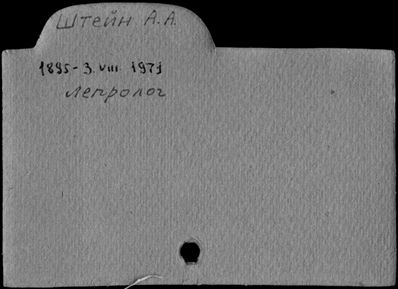 Штейн А.А.
1895 - 3.VIII. 1971
лепролог